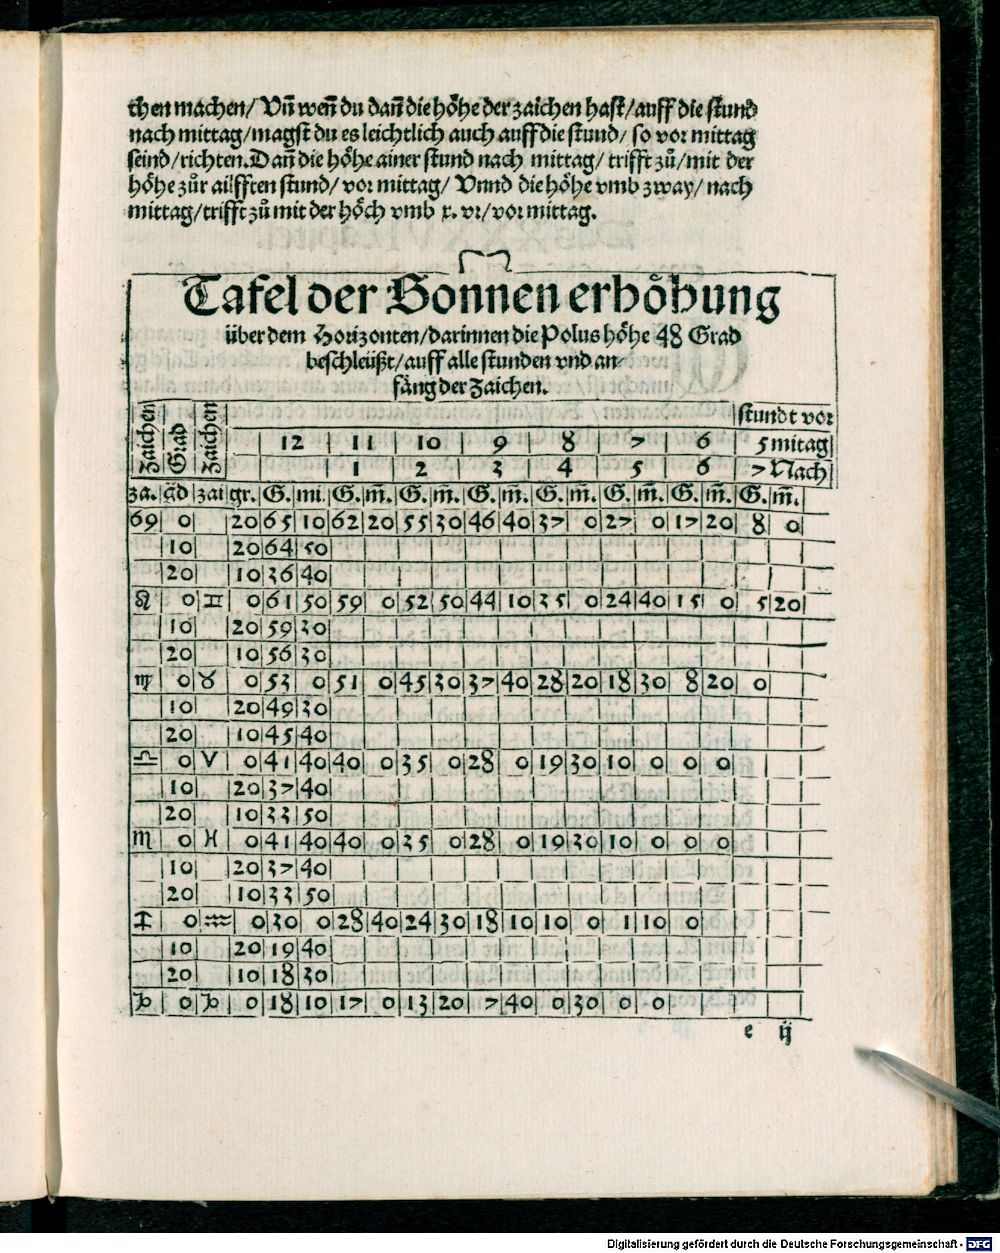 chen machen/ Vn̄ weñ du dañ die höhe der zaichen hast/ auff die stund
nach mittag/ magst du es leichtlich auch auff die stund/ so vor mittag
seind/ richten. Dañ die höhe ainer stund nach mittag/ trifft zů/ mit der
höhe zůr ailfften stund/ vor mittag/ Vnnd die höhe vmb zway/ nach
mittag/ trifft zů mit der höch vmb x. vr/ vor mittag.
Tafel der Sonnen erhöhung
über dem Horizonten/ darinnen die Polus höhe 48 Grad
beschleüßt/ auff alle stunden vnd an-
fäng der Zaichen.
Zaichen Grad Zaichen stundt vor
12 11 10 9 8 7 6 5 mitag
1 2 3 4 5 6 7 Nach
za. gd zai gr. G. mi. G. m̄. G. m̄. G. m̄. G. m̄. G. m̄. G. m̄. G. m̄.
♋ 0 20 65 10 62 20 55 30 46 40 37 0 27 0 17 20 8 0
10 20 64 50
20 10 36 40
♌ 0 ♊ 0 61 50 59 0 52 50 44 10 35 0 24 40 15 0 5 20
10 20 59 30
20 10 56 30
♍ 0 ♉ 0 53 0 51 0 45 30 37 40 28 20 18 30 8 20 0
10 20 49 30
20 10 45 40
♎ 0 ♈ 0 41 40 40 0 35 0 28 0 19 30 10 0 0 0
10 20 37 40
20 10 33 50
♏ 0 ♓ 0 41 40 40 0 35 0 28 0 19 30 10 0 0 0
10 20 37 40
20 10 33 50
♐ 0 ♒ 0 30 0 28 40 24 30 18 10 10 0 1 10 0
10 20 19 40
20 10 18 30
♑ 0 ♑ 0 18 10 17 0 13 20 7 40 0 30 0 0
e ij
Digitalisierung gefördert durch die Deutsche Forschungsgemeinschaft - DFG